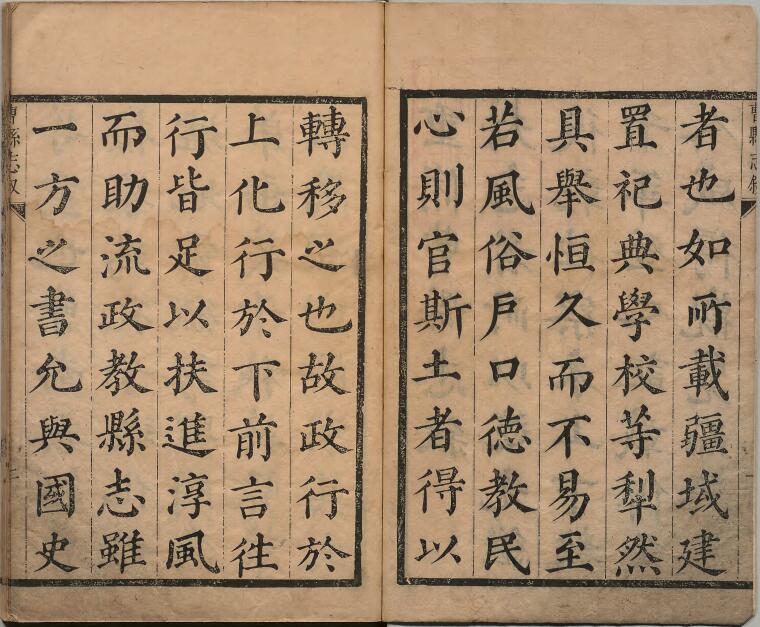 曹縣志叙
者也如所載疆域建
置祀典學校等犁然
具舉恒久而不易至
若風俗戶口德教民
心則官斯土者得以
轉移之也故政行於
上化行於下前言往
行皆足以扶進淳風
而助流政教縣志雖
一方之書允與國史
曹縣志叙